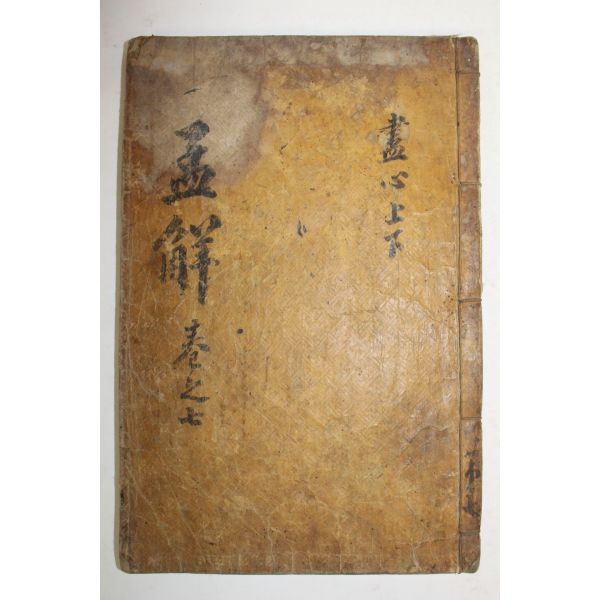 盡心上下
孟解 卷之七